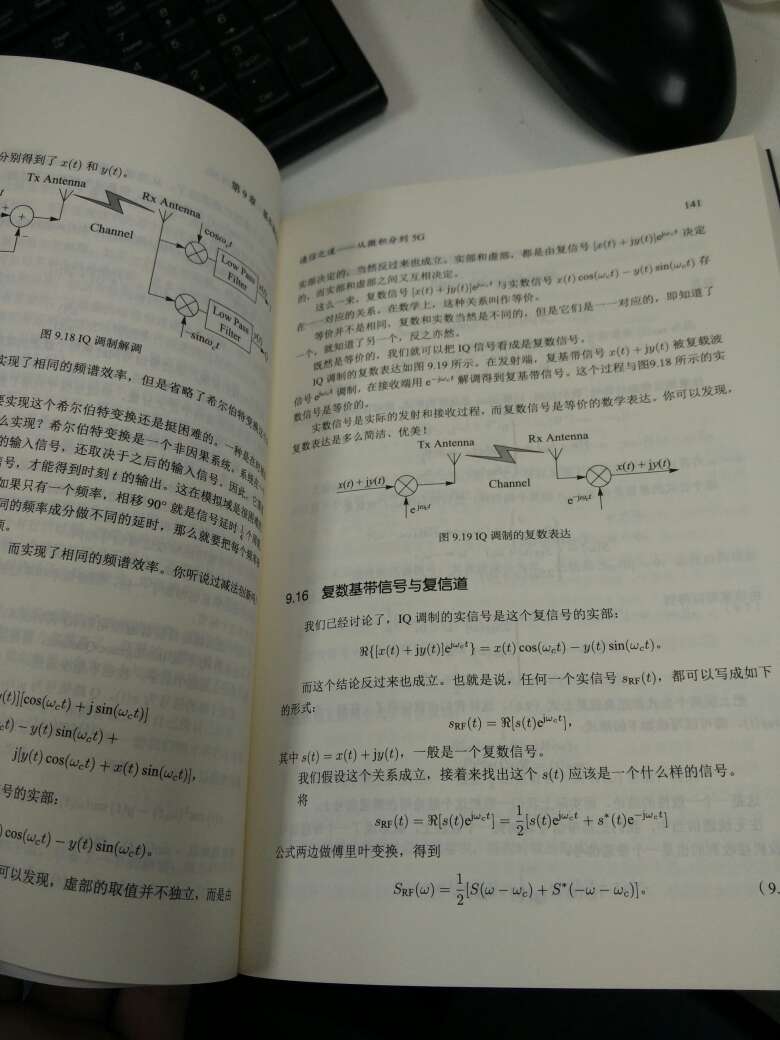 分别得到了 x(t) 和 y(t)。
第 9 章
Tx Antenna
Rx Antenna
Channel
cosω꜀t
Low Pass
Filter
Low Pass
Filter
−sinω꜀t
图 9.18 IQ 调制解调
实现了相同的频谱效率，但是省略了希尔伯特变换
要实现这个希尔伯特变换还是挺困难的。一种是在
么实现？希尔伯特变换是一个非因果系统，系统在
的输入信号，还取决于之后的输入信号，因此，它
信号，才能得到时刻 t 的输出。这在模拟域是很困难
如果只有一个频率，相移 90° 就是信号延时
同的频率成分做不同的延时，那么就要把每个频率
而实现了相同的频谱效率。你听说过减法创新吗
y(t)][cos(ω꜀t) + j sin(ω꜀t)]
꜀t) − y(t) sin(ω꜀t) +
j[y(t) cos(ω꜀t) + x(t) sin(ω꜀t)],
号的实部：
) cos(ω꜀t) − y(t) sin(ω꜀t)。
可以发现，虚部的取值并不独立，而是由
通信之道——从微积分到 5G
141
实部决定的，当然反过来也成立。实部和虚部，都是由复信号 [x(t) + jy(t)]e^{jω꜀t} 决定
的，而实部和虚部之间又互相决定。
这么一来，复数信号 [x(t) + jy(t)]e^{jω꜀t} 与实数信号 x(t) cos(ω꜀t) − y(t) sin(ω꜀t) 存
在一一对应的关系，在数学上，这种关系叫作等价。
等价并不是相同，复数和实数当然是不同的，但是它们是一一对应的，即知道了
一个，就知道了另一个，反之亦然。
既然是等价的，我们就可以把 IQ 信号看成是复数信号。
IQ 调制的复数表达如图 9.19 所示。在发射端，复基带信号 x(t) + jy(t) 被复载波
信号 e^{jω꜀t} 调制，在接收端用 e^{−jω꜀t} 解调得到复基带信号。这个过程与图9.18 所示的实
数信号是等价的。
实数信号是实际的发射和接收过程，而复数信号是等价的数学表达。你可以发现，
复数表达是多么简洁、优美！
Tx Antenna
Rx Antenna
x(t) + jy(t)
Channel
x(t) + jy(t)
e^{jω꜀t}
e^{−jω꜀t}
图 9.19 IQ 调制的复数表达
9.16 复数基带信号与复信道
我们已经讨论了，IQ 调制的实信号是这个复信号的实部：
ℜ{[x(t) + jy(t)]e^{jω꜀t}} = x(t) cos(ω꜀t) − y(t) sin(ω꜀t)。
而这个结论反过来也成立。也就是说，任何一个实信号 s_{RF}(t)，都可以写成如下
的形式：
s_{RF}(t) = ℜ[s(t)e^{jω꜀t}],
其中 s(t) = x(t) + jy(t)，一般是一个复数信号。
我们假设这个关系成立，接着来找出这个 s(t) 应该是一个什么样的信号。
将
s_{RF}(t) = ℜ[s(t)e^{jω꜀t}] = 1/2[s(t)e^{jω꜀t} + s*(t)e^{−jω꜀t}]
公式两边做傅里叶变换，得到
S_{RF}(ω) = 1/2[S(ω − ω꜀) + S*(−ω − ω꜀)]。 (9.